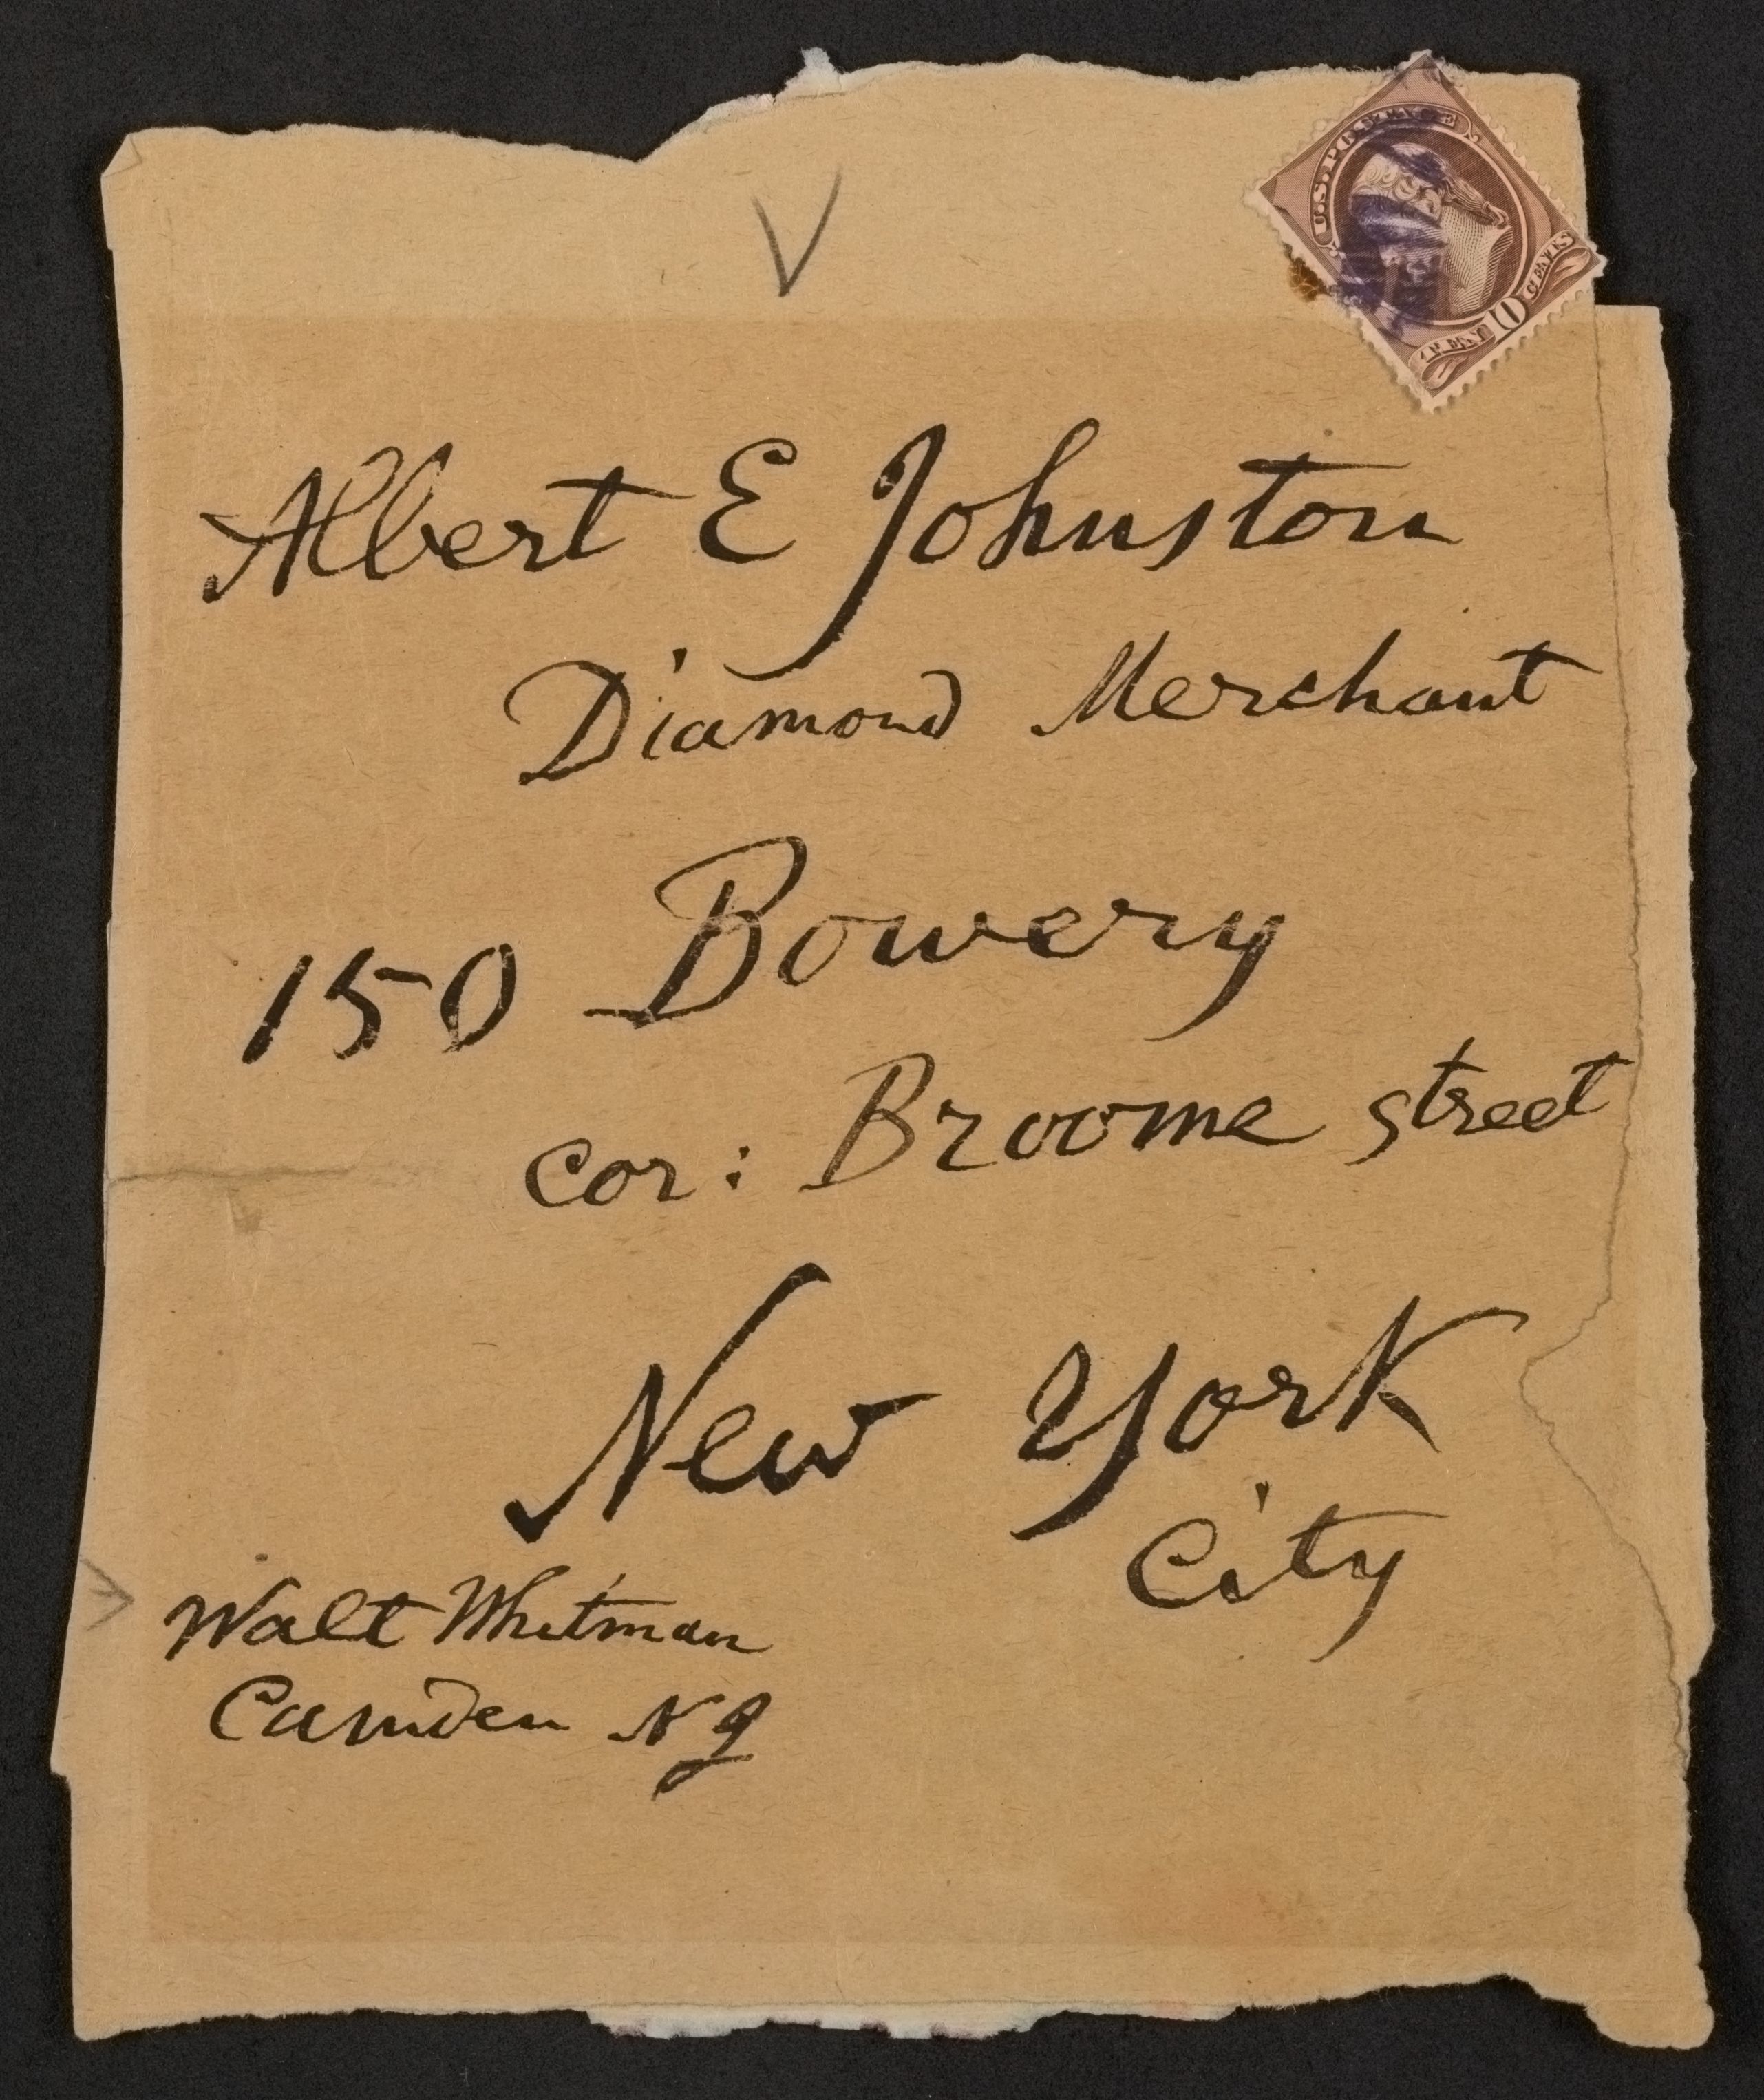 U.S. POSTAGE
10
CENTS
Albert E Johnston
Diamond Merchant
150 Bowery
cor: Broome street
New York
City
Walt Whitman
Camden NJ